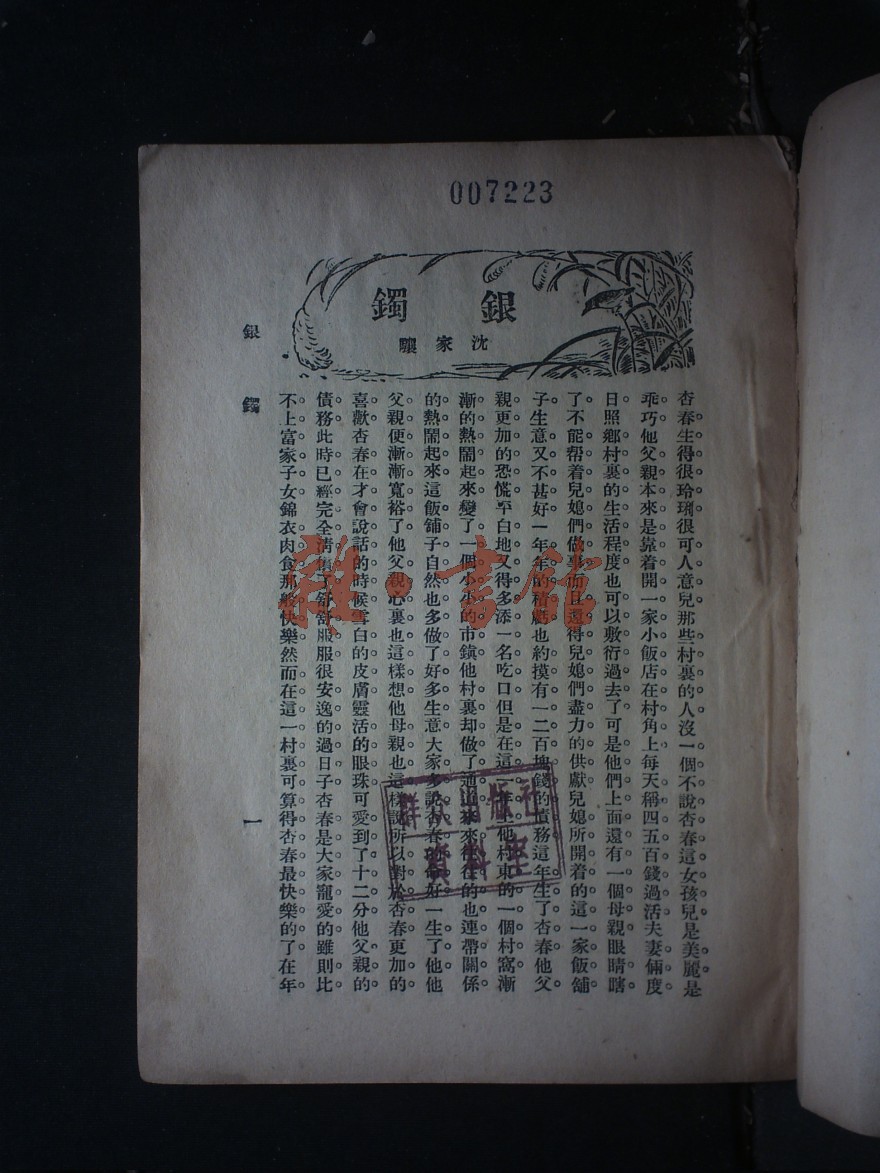 007223
銀鐲
沈家驤
杏春生得很玲琍很可人意兒那些村裏的人沒一個不說杏春這女孩兒是美麗是
乖巧他父親本來是靠着開一家小飯店在村角上每天稱四五百錢過活夫妻倆度
日照鄉村裏的生活程度也可以敷衍過去了可是他們上面還有一個母親眼睛瞎
了不能帮着兒媳們做事而且還得兒媳們盡力的供獻兒媳所開着的這一家飯舖
子生意又不甚好一年年的積虧也約摸有一二百塊錢的債務這年生了杏春他父
親更加的恐慌平白地又得多添一名吃口但是在這一年上他村東的一個村窩漸
漸的熱鬧起來變了一個小小的市鎮他村裏却做了通道來來往往的也連帶關係
的熱鬧起來這飯舖子自然也多做了好多生意大家多說杏春的命好一生了他他
父親便漸漸寬裕了他父親心裏也這樣想他母親也這樣說所以對於杏春更加的
喜歡杏春在才會說話的時候雪白的皮膚靈活的眼珠可愛到了十二分他父親的
債務此時已經完全清償了舒舒服服很安逸的過日子杏春是大家寵愛的雖則比
不上富家子女錦衣肉食那般快樂然而在這一村裏可算得杏春最快樂的了在年
銀鐲
一
群众出版社
資料室
雜·書館